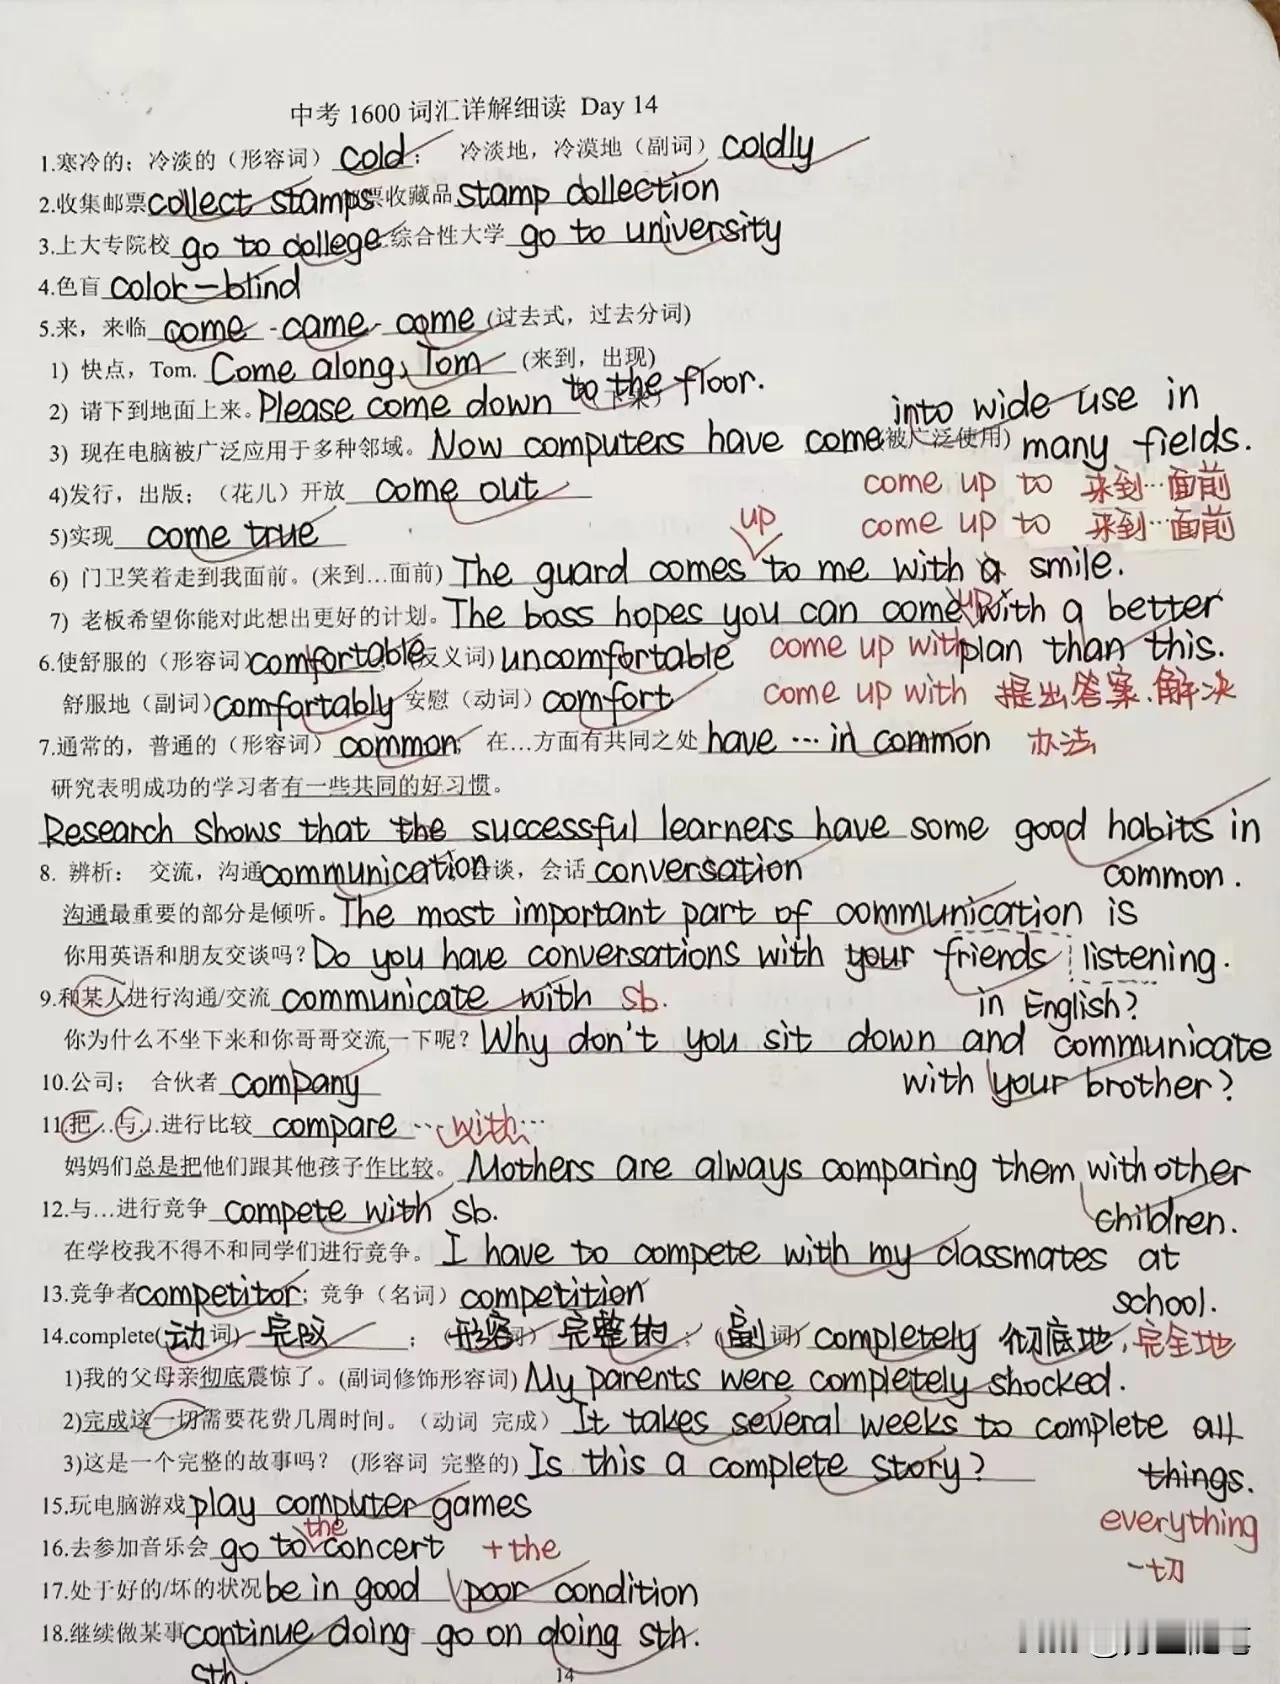 中考 1600 词汇详解细读 Day 14
1.寒冷的；冷淡的（形容词） cold ； 冷淡地，冷漠地（副词） coldly
2.收集邮票 collect stamps 票收藏品 stamp collection
3.上大专院校 go to college 综合性大学 go to university
4.色盲 color-blind
5.来，来临 come - came - come (过去式，过去分词)
1) 快点，Tom. Come along, Tom (来到，出现)
2) 请下到地面上来。Please come down to the floor. (下来)
3) 现在电脑被广泛应用于多种邻域。Now computers have come into wide use in (被广泛使用) many fields.
4)发行，出版；（花儿）开放 come out come up to 来到…面前
5)实现 come true come up to 来到…面前
6) 门卫笑着走到我面前。(来到…面前) The guard comes up to me with a smile.
7) 老板希望你能对此想出更好的计划。The boss hopes you can come up with a better
6.使舒服的（形容词) comfortable 反义词) uncomfortable come up with plan than this.
舒服地（副词) comfortably 安慰（动词） comfort come up with 提出答案、解决
7.通常的，普通的（形容词） common; 在…方面有共同之处 have … in common 办法
研究表明成功的学习者有一些共同的好习惯。
Research shows that the successful learners have some good habits in
8. 辨析： 交流，沟通 communication 谈，会话 conversation common.
沟通最重要的部分是倾听。The most important part of communication is
你用英语和朋友交谈吗？Do you have conversations with your friends listening.
9.和某人进行沟通/交流 communicate with sb. in English?
你为什么不坐下来和你哥哥交流一下呢？Why don't you sit down and communicate
10.公司； 合伙者 company with your brother?
11.把…与…进行比较 compare … with …
妈妈们总是把他们跟其他孩子作比较。Mothers are always comparing them with other
12.与…进行竞争 compete with sb. children.
在学校我不得不和同学们进行竞争。I have to compete with my classmates at
13.竞争者 competitor; 竞争（名词） competition school.
14.complete(动词) 完成 ；（形容词） 完整的；（副词） completely 彻底地，完全地
1)我的父母亲彻底震惊了。(副词修饰形容词) My parents were completely shocked.
2)完成这一切需要花费几周时间。（动词 完成） It takes several weeks to complete all
3)这是一个完整的故事吗？ (形容词 完整的) Is this a complete story? things.
15.玩电脑游戏 play computer games everything
16.去参加音乐会 go to the concert +the 一切
17.处于好的/坏的状况 be in good \poor condition
18.继续做某事 continue doing go on doing sth.
sth.
14